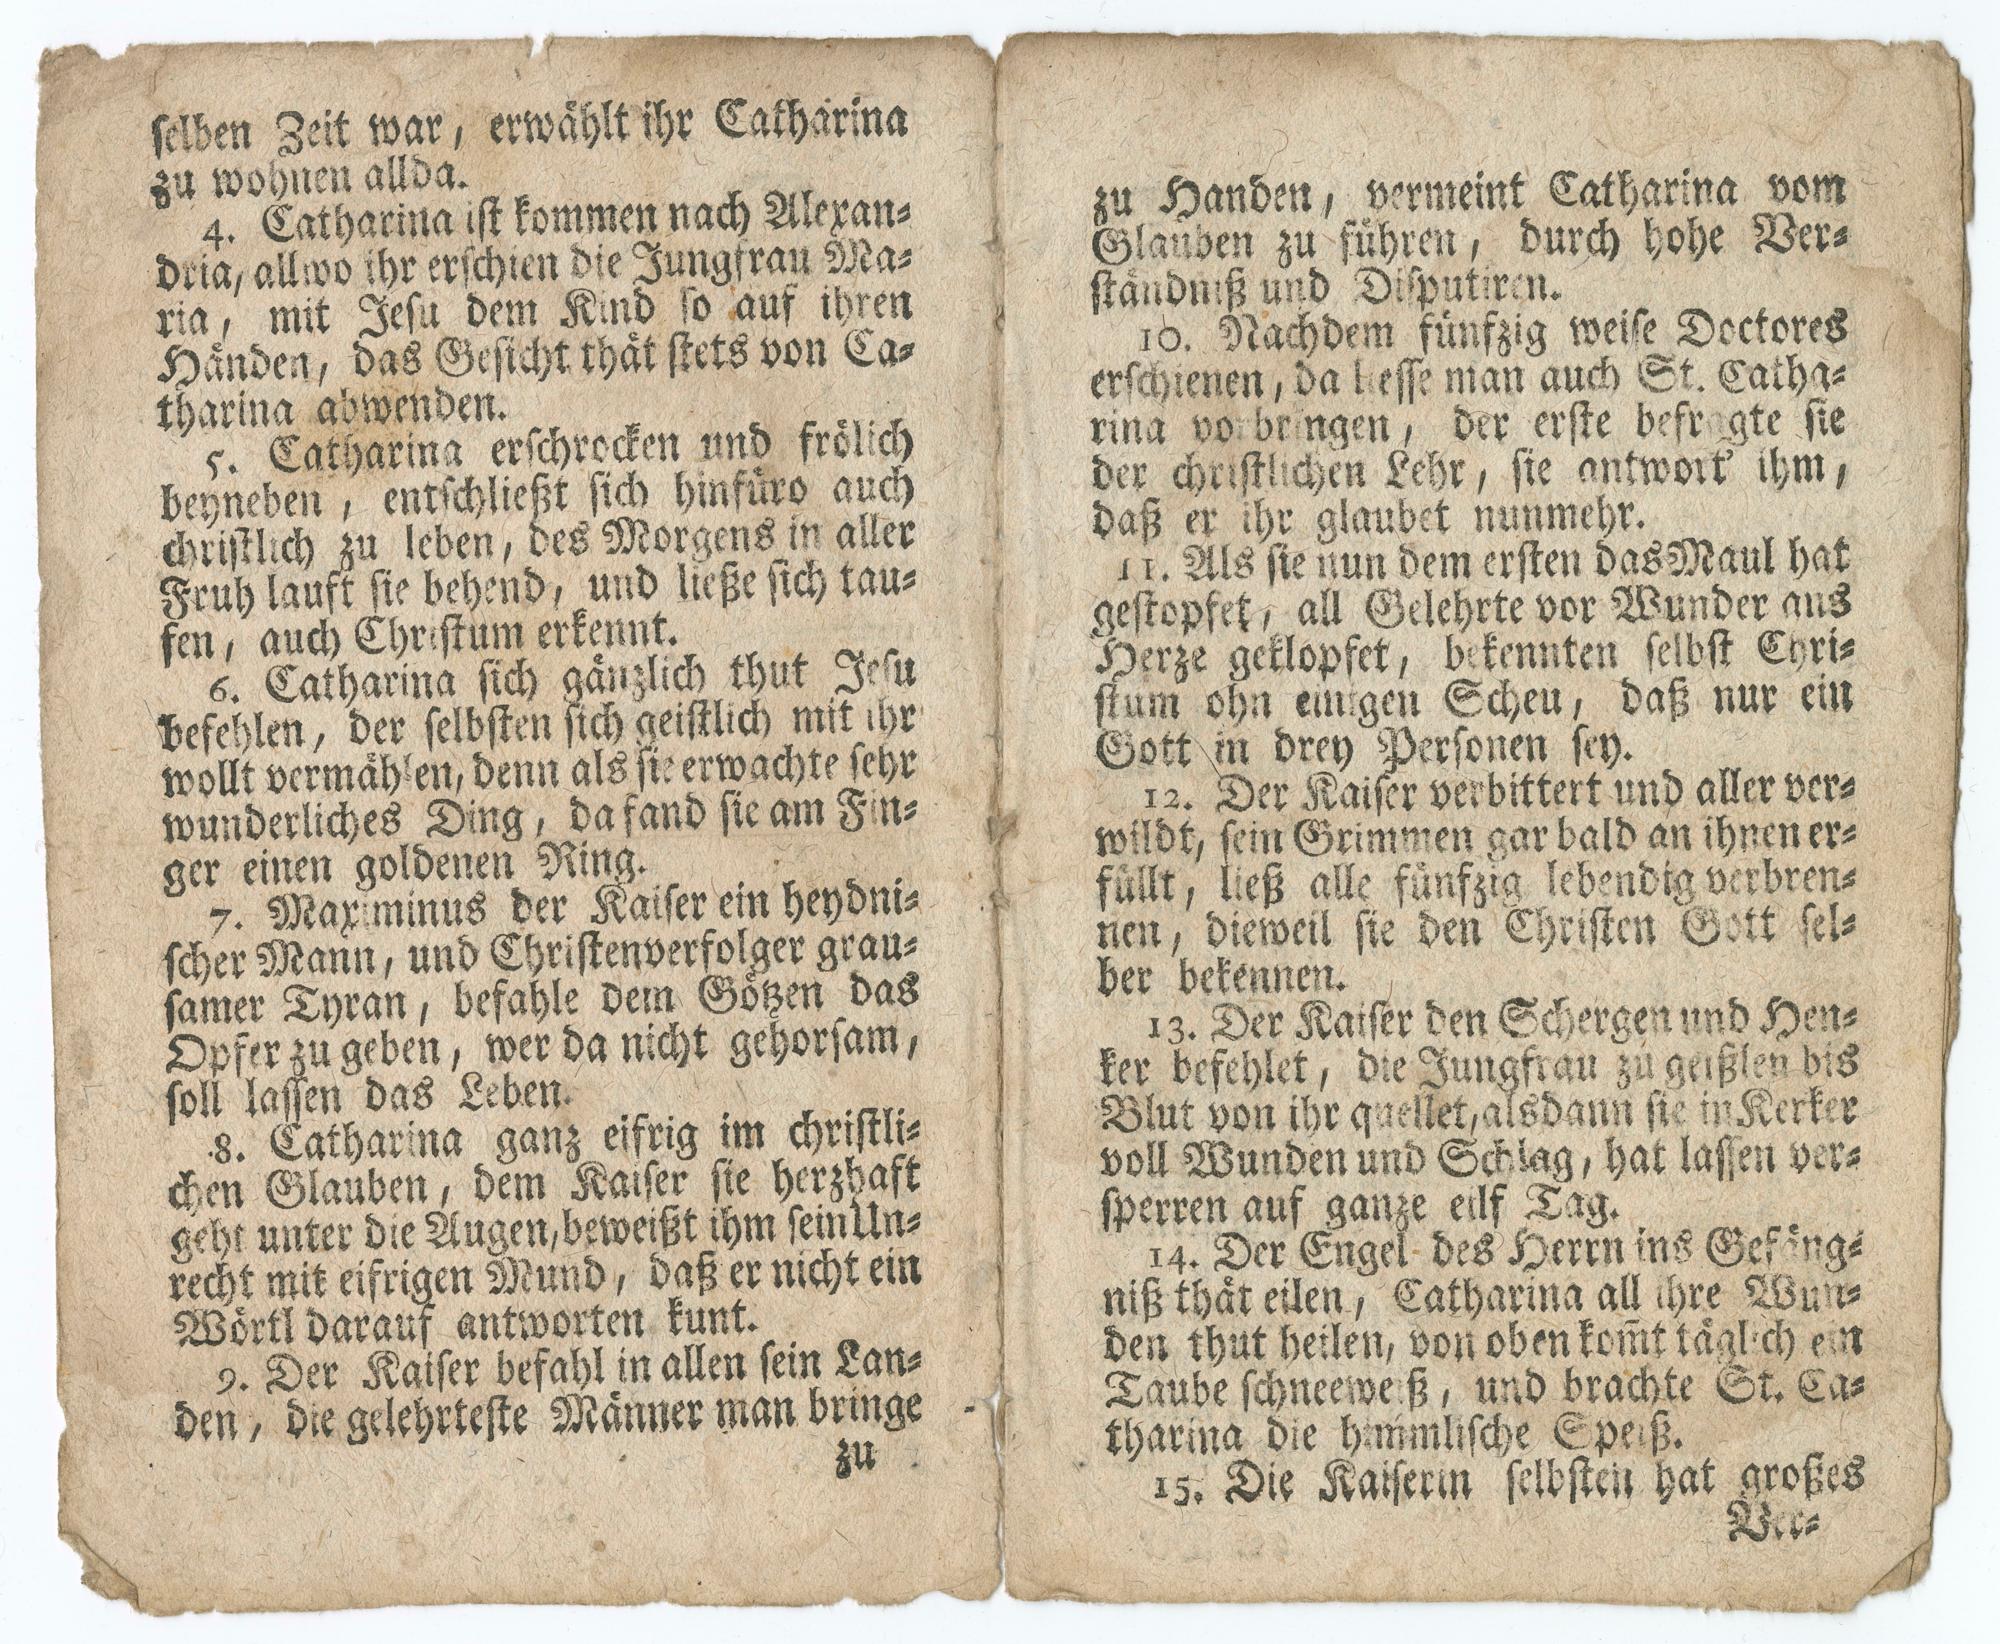 selben Zeit war, erwählt ihr Catharina
zu wohnen allda.
4. Catharina ist kommen nach Alexan-
dria, allwo ihr erschien die Jungfrau Ma-
ria, mit Jesu dem Kind so auf ihren
Händen, das Gesicht thät stets von Ca-
tharina abwenden.
5. Catharina erschrocken und frölich
beyneben, entschließt sich hinfüro auch
christlich zu leben, des Morgens in aller
Fruh lauft sie behend, und ließe sich tau-
fen, auch Christum erkennt.
6. Catharina sich gänzlich thut Jesu
befehlen, der selbsten sich geistlich mit ihr
wollt vermählen, denn als sie erwachte sehr
wunderliches Ding, da fand sie am Fin-
ger einen goldenen Ring.
7. Maximinus der Kaiser ein heydni-
scher Mann, und Christenverfolger grau-
samer Tyran, befahle dem Götzen das
Opfer zu geben, wer da nicht gehorsam,
soll lassen das Leben.
8. Catharina ganz eifrig im christli-
chen Glauben, dem Kaiser sie herzhaft
geht unter die Augen, beweißt ihm sein Un-
recht mit eifrigen Mund, daß er nicht ein
Wörtl darauf antworten kunt.
9. Der Kaiser befahl in allen sein Lan-
den, die gelehrteste Männer man bringe
zu
zu Handen, vermeint Catharina vom
Glauben zu führen, durch hohe Ver-
ständniß und Disputiren.
10. Nachdem fünfzig weise Doctores
erschienen, da liesse man auch St. Catha-
rina vorbringen, der erste befragte sie
der christlichen Lehr, sie antwort' ihm,
daß er ihr glaubet nunmehr.
11. Als sie nun dem ersten das Maul hat
gestopfet, all Gelehrte vor Wunder ans
Herze geklopfet, bekennten selbst Chri-
stum ohn einigen Scheu, daß nur ein
Gott in drey Personen sey.
12. Der Kaiser verbittert und aller ver-
wildt, sein Grimmen gar bald an ihnen er-
füllt, ließ alle fünfzig lebendig verbren-
nen, dieweil sie den Christen Gott sel-
ber bekennen.
13. Der Kaiser den Schergen und Hen-
ker befehlet, die Jungfrau zu geißlen bis
Blut von ihr quellet, alsdann sie in Kerker
voll Wunden und Schlag, hat lassen ver-
sperren auf ganze eilf Tag.
14. Der Engel des Herrn ins Gefäng-
niß thät eilen, Catharina all ihre Wun-
den thut heilen, von oben kom̃t täglich ein
Taube schneeweiß, und brachte St. Ca-
tharina die himmlische Speiß.
15. Die Kaiserin selbsten hat großes
Ver-